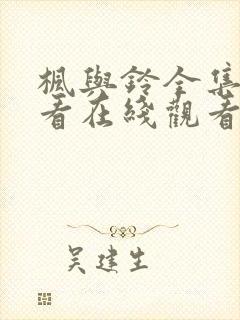 楓與鈴全集
看在綫觀看
吴建生